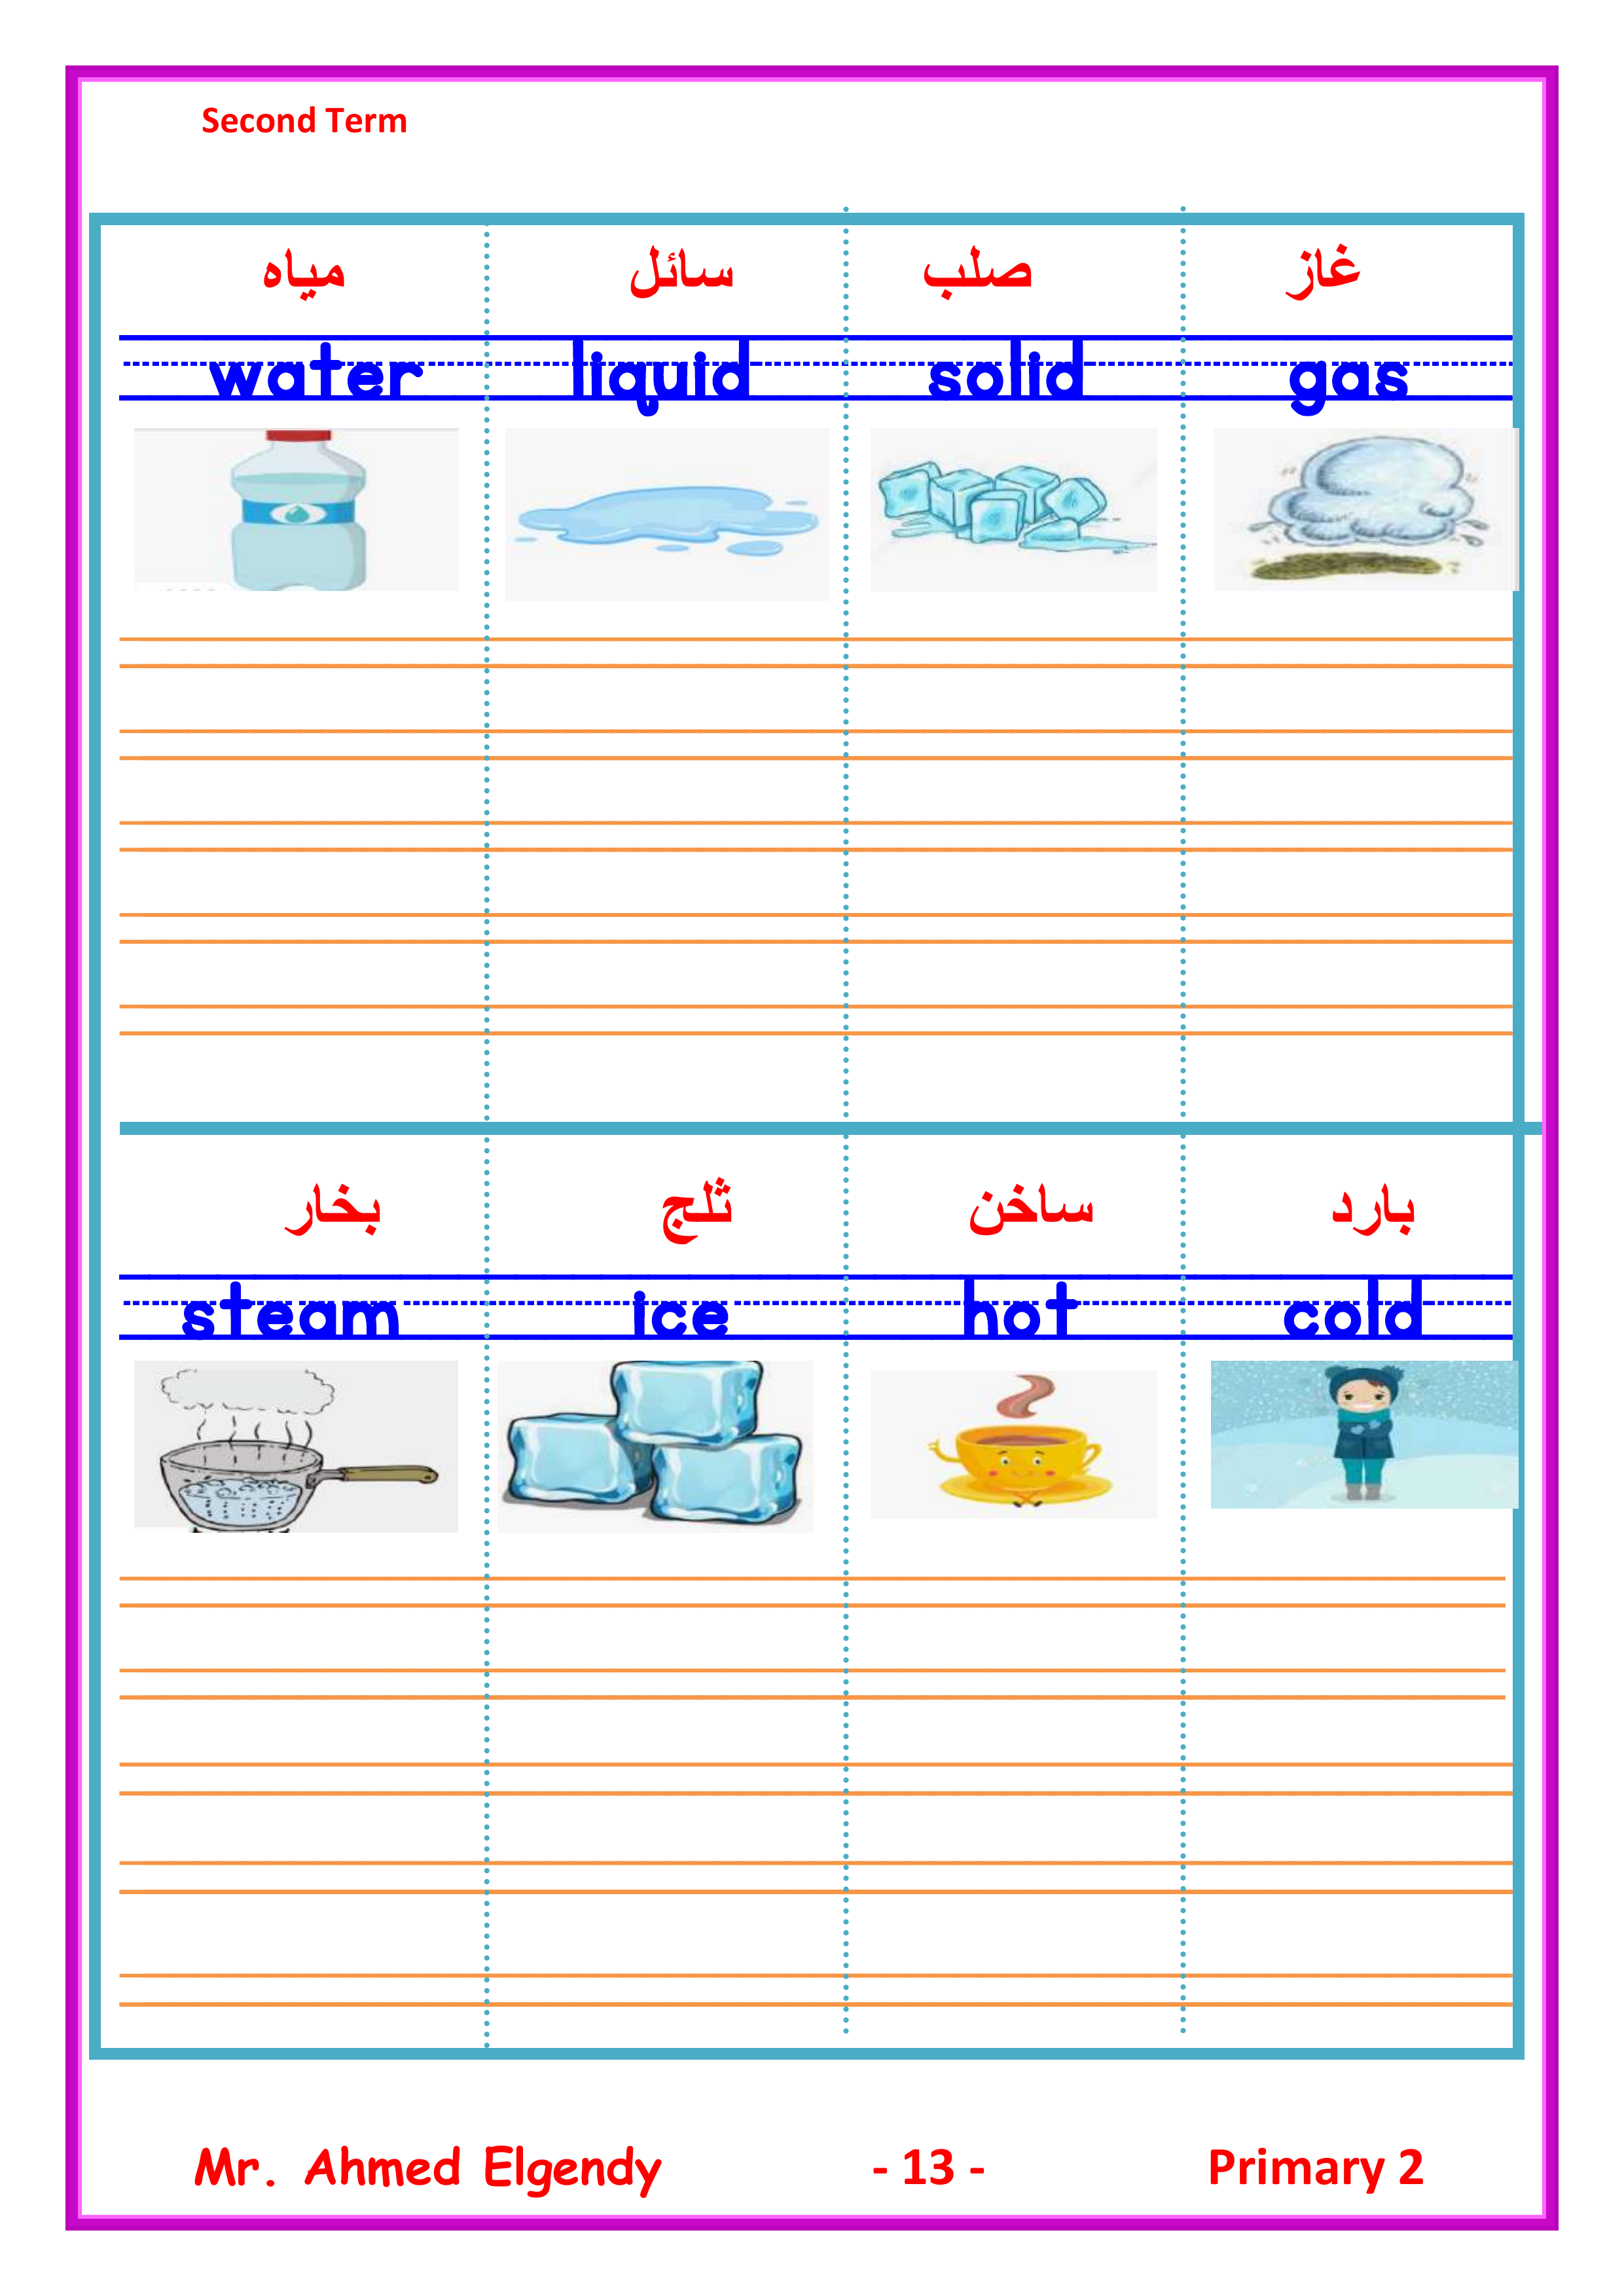 Second Term
مياه سائل صلب غاز
water liquid solid gas
بخار ثلج ساخن بارد
steam ice hot cold
Mr. Ahmed Elgendy - 13 - Primary 2